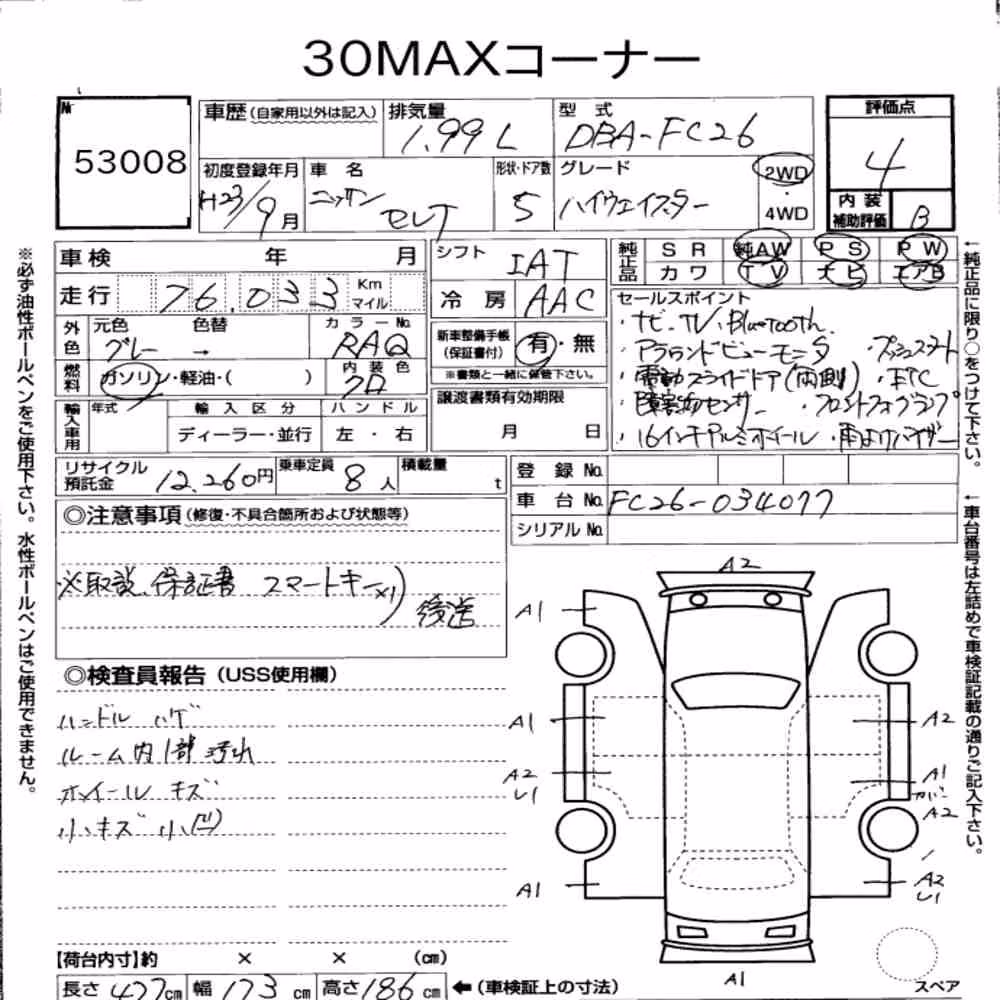 30MAXコーナー
№
53008
車歴(自家用以外は記入)
排気量
1.99L
型式
DBA-FC26
評価点
4
初度登録年月
H23/9月
車名
ニッサン セレナ
形状・ドア数
5
グレード
ハイウェイスター
2WD
・
4WD
内装
補助評価
B
車検 年 月
シフト
IAT
純正品
SR 純AW PS PW
カワ TV ナビ エアB
走行 76,033 Km
マイル
冷房
AAC
セールスポイント
・ナビ・TV・Bluetooth
・アラウンドビューモニタ ・プッシュスタート
・電動スライドドア(両側) ・ETC
・障害物センサー ・フロントフォグランプ
・16インチアルミホイール ・雨よけバイザー
外色
元色 色替 カラーNo.
グレー → RAQ
新車整備手帳
(保証書付)
有・無
※書類と一緒に保管下さい。
燃料
ガソリン・軽油・( )
内装色
クロ
輸入車用
年式 輸入区分 ハンドル
ディーラー・並行 左・右
譲渡書類有効期限
月 日
リサイクル
預託金
12,260円
乗車定員
8人
積載量
t
登録No.
車台No. FC26-034077
シリアルNo.
◎注意事項(修復・不具合箇所および状態等)
※取説、保証書 スマートキー×1) 後送
◎検査員報告(USS使用欄)
ハンドル ハゲ
ルーム内1部汚れ
ホイール キズ
小キズ 小凹
A2
A1
A1
A2
A2
U1
A1
カバー
A2
A1
A2
U1
A1
スペア
【荷台内寸】約 × × (cm)
長さ 477cm 幅 173cm 高さ 186cm ←(車検証上の寸法)
※必ず油性ボールペンをご使用下さい。水性ボールペンはご使用できません。
←純正品に限り○をつけて下さい。
←車台番号は左詰めで車検証記載の通りご記入下さい。